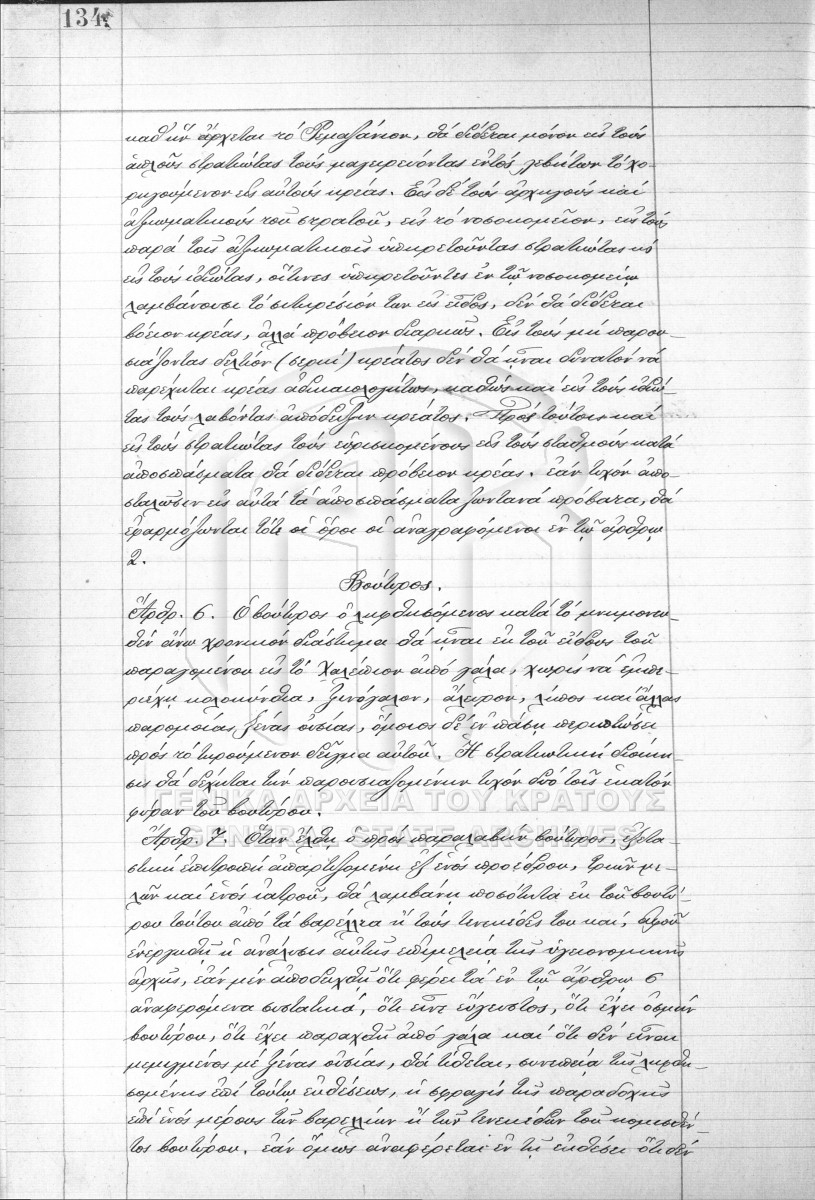 134
καθ' ἥν ἄρχεται τό Ραμαζάνιον, θά δίδεται μόνον εἰς τούς
ἁπλοῦς στρατιώτας τούς μαγειρεύοντας ἐντός λεβήτων τό χο-
ρηγούμενον εἰς αὐτούς κρέας. Εἰς δέ τούς ἀρχηγούς καί
ἀξιωματικούς τοῦ στρατοῦ, εἰς τό νοσοκομεῖον, εἰς τούς
παρά τοῖς ἀξιωματικοῖς ὑπηρετοῦντας στρατιώτας κ'
εἰς τούς ἰδιώτας, οἵτινες ὑπηρετοῦντες ἐν τῷ νοσοκομείῳ
λαμβάνουσι τό σιτηρέσιόν των εἰς εἶδος, δέν θά δίδεται
βόειον κρέας, ἀλλά πρόβειον διαρκῶς. Εἰς τούς μή παρου-
σιάζοντας δελτίον (σερκί) κρέατος δέν θά ᾖναι δυνατόν νά
παρέχηται κρέας ἀδικαιολογήτως, καθώς καί εἰς τούς ἰδιώ-
τας τούς λαβόντας ἀπόδειξιν κρέατος. Πρός τούτοις καί
εἰς τούς στρατιώτας τούς εὑρισκομένους εἰς τούς σταθμούς κατά
ἀποσπάσματα θά δίδεται πρόβειον κρέας. ἐάν τυχόν ἀπο-
σταλῶσιν εἰς αὐτά τά ἀποσπάσματα ζωντανά πρόβατα, θά
ἐφαρμόζωνται τότε οἱ ὅροι οἱ ἀναγραφόμενοι ἐν τῷ ἄρθρῳ
2.
Βούτυρος.
Ἄρθρ. 6. Ὁ βούτυρος ὁ ληφθησόμενος κατά τό μνημονευ-
θέν ἄνω χρονικόν διάστημα θά ᾖναι ἐκ τοῦ εἴδους τοῦ
παραγομένου εἰς τό Χαλέπιον ἀπό γάλα, χωρίς νά ἐμπε-
ριέχῃ κολοκύνθια, ξινόγαλον, ἄλευρον, λίπος καί ἄλλας
παρομοίας ξένας οὐσίας, ὅμοιος δέ ἐν πάσῃ περιπτώσει
πρός τό τηρούμενον δεῖγμα αὐτοῦ. Ἡ στρατιωτική διοίκη-
σις θά δέχηται τήν παρουσιαζομένην τυχόν δύο τοῖς ἑκατόν
φύραν τοῦ βουτύρου.
Ἄρθρ. 7. Ὅταν ἔλθῃ ὁ πρός παραλαβήν βούτυρος, ἐξετα-
στική ἐπιτροπή ἀπαρτιζομένη ἐξ ἑνός προέδρου, τριῶν με-
λῶν καί ἑνός ἰατροῦ, θά λαμβάνῃ ποσότητα ἐκ τοῦ βουτύ-
ρου τούτου ἀπό τά βαρέλλια ἤ τούς τενεκέδες του καί, ἀφοῦ
ἐνεργηθῇ ἡ ἀνάλυσις αὐτῆς ἐπιμελείᾳ τῆς ὑγειονομικῆς
ἀρχῆς, ἐάν μέν ἀποδειχθῇ ὅτι φέρει τά ἐν τῷ ἄρθρῳ 6
ἀναφερόμενα συστατικά, ὅτι εἶνε εὔγευστος, ὅτι ἔχει ὀσμήν
βουτύρου, ὅτι ἔχει παραχθῆ ἀπό γάλα καί ὅτι δέν εἶναι
μεμιγμένος μέ ξένας οὐσίας, θά τίθεται, συνεπείᾳ τῆς ληφθη-
σομένης ἐπί τούτῳ ἐκθέσεως, ἡ σφραγίς τῆς παραδοχῆς
ἐπί ἑνός μέρους τῶν βαρελλίων ἤ τῶν τενεκέδων τοῦ κομισθέν-
τος βουτύρου. ἐάν ὅμως ἀναφέρεται ἐν τῇ ἐκθέσει ὅτι δέν
ΓΕΝΙΚΑ ΑΡΧΕΙΑ ΤΟΥ ΚΡΑΤΟΥΣ
GENERAL STATE ARCHIVES